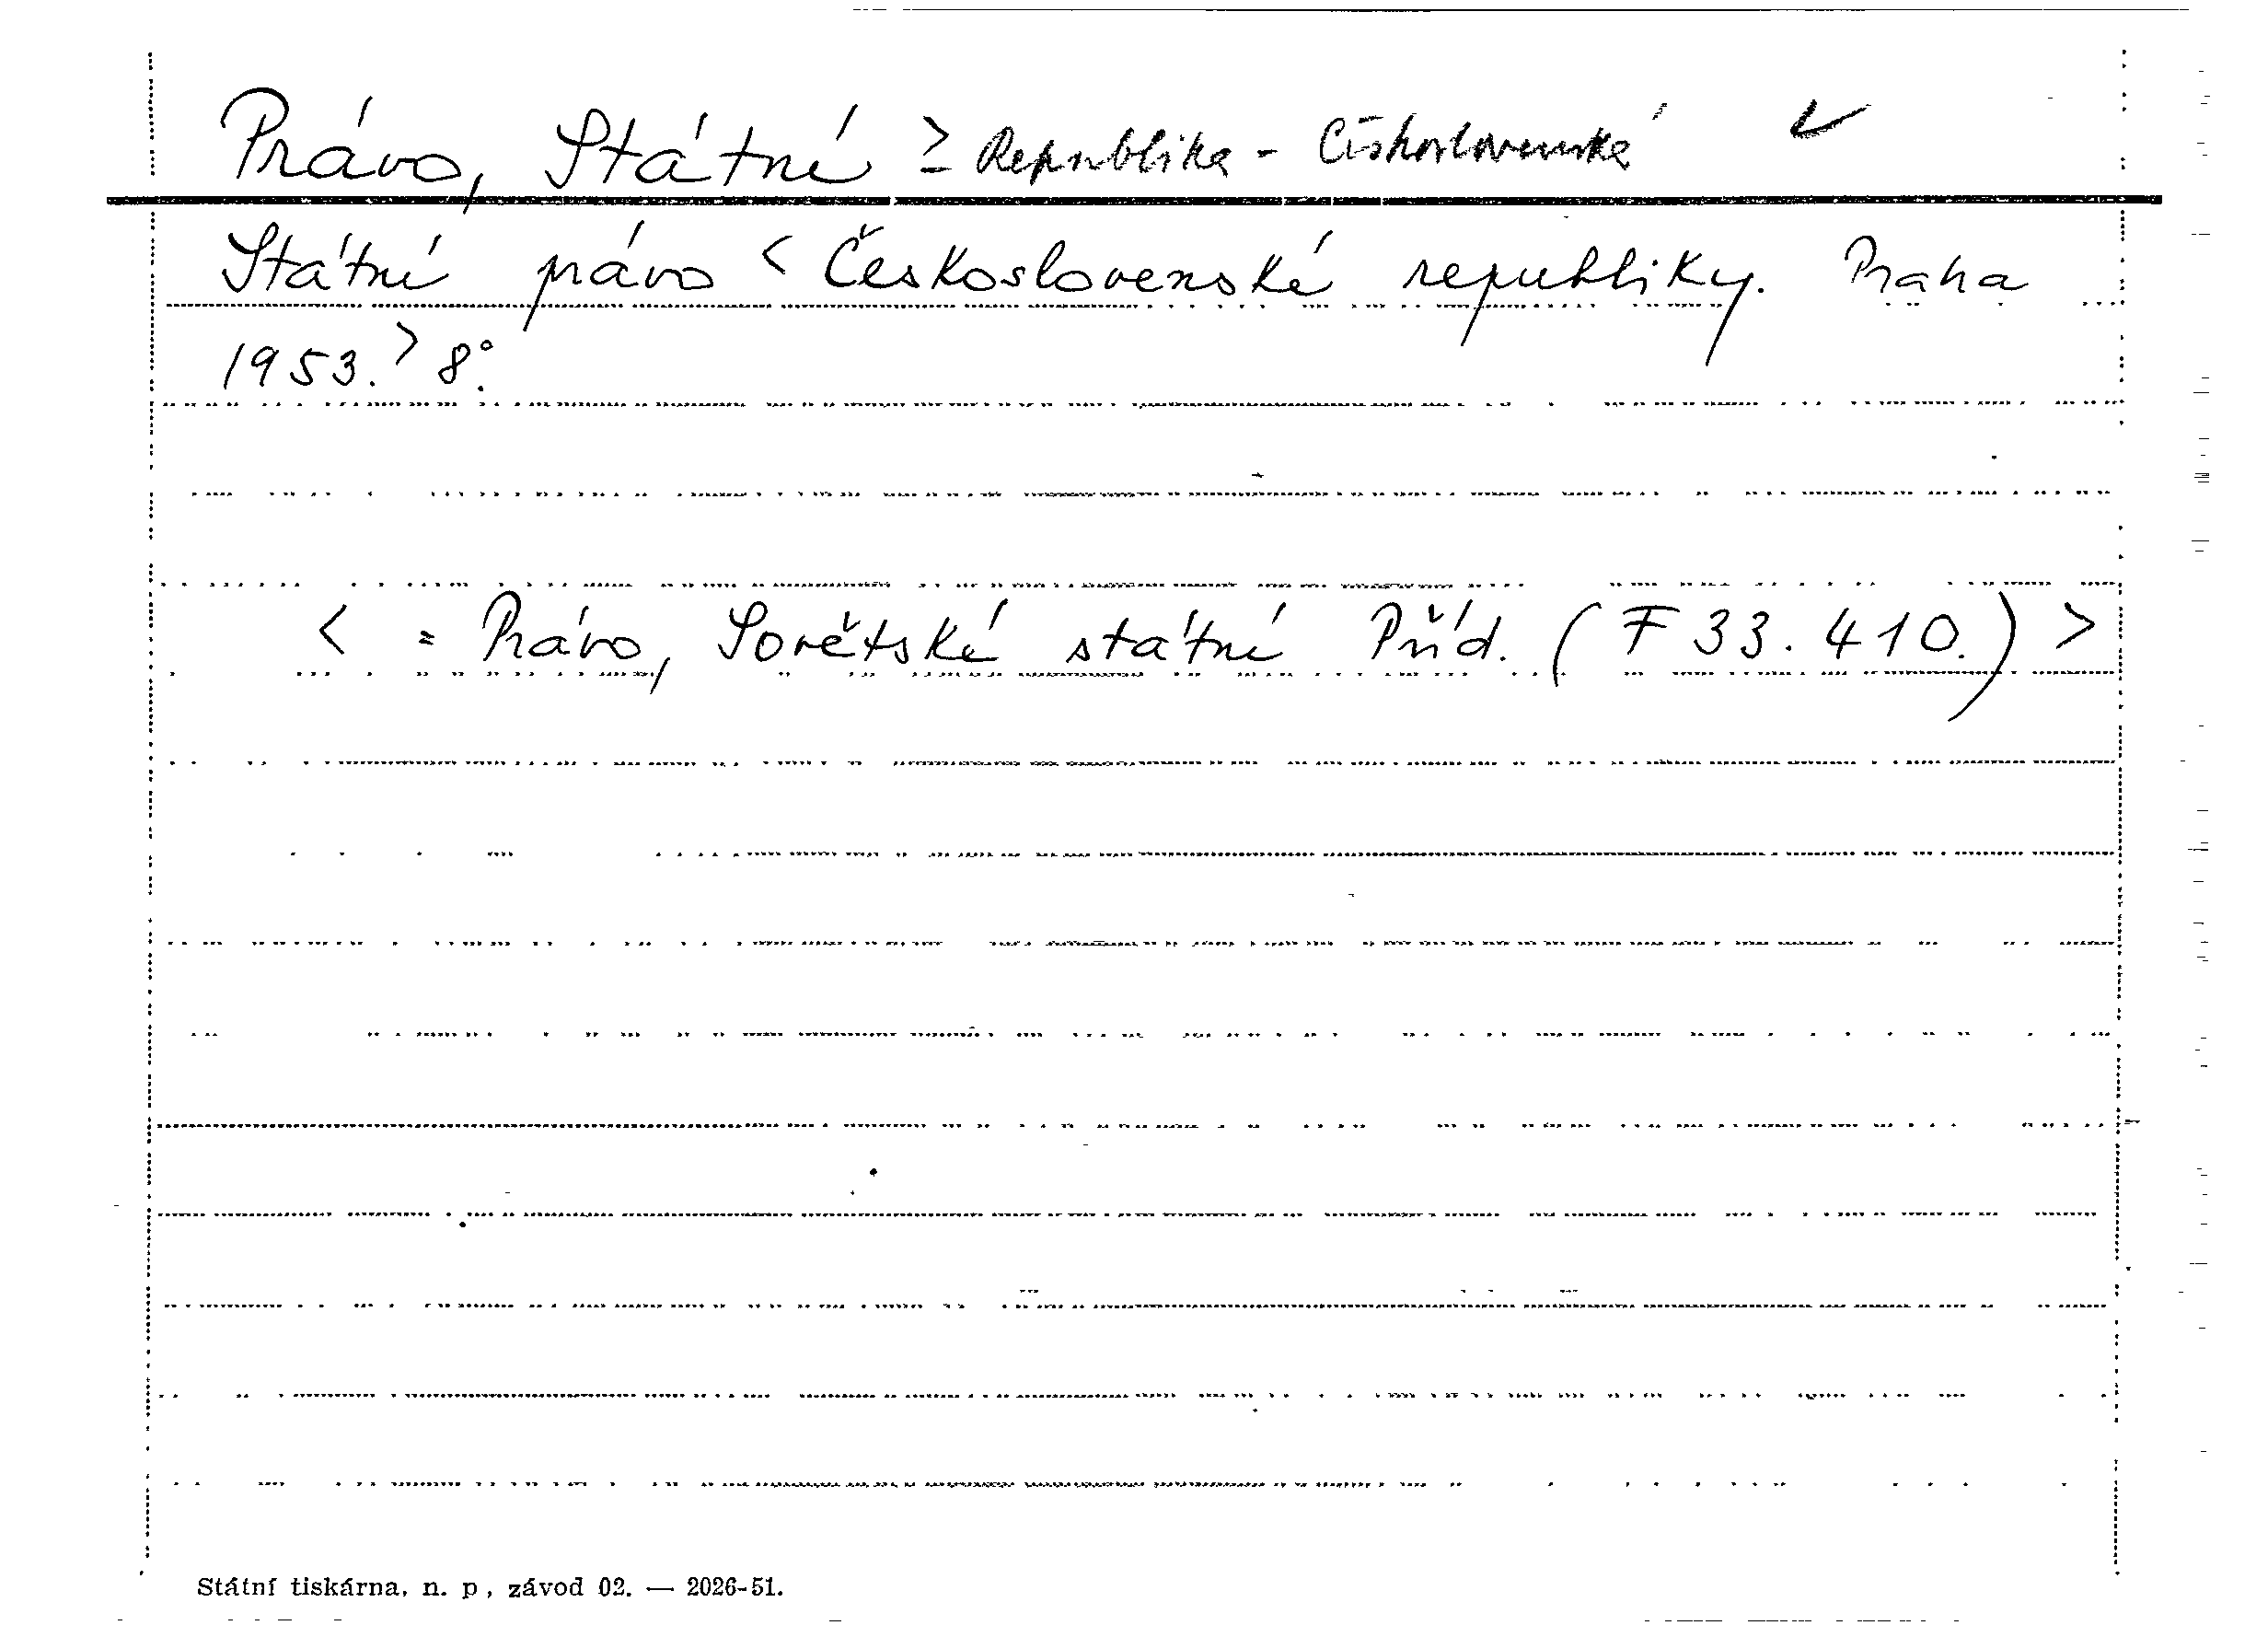 Právo, Státní ≥ Republika - Československá
Státní právo < Československé republiky. Praha
1953. > 8°.
< = Právo, Sovětské státní Příd. (F 33.410.) >
Státní tiskárna, n. p., závod 02. — 2026-51.